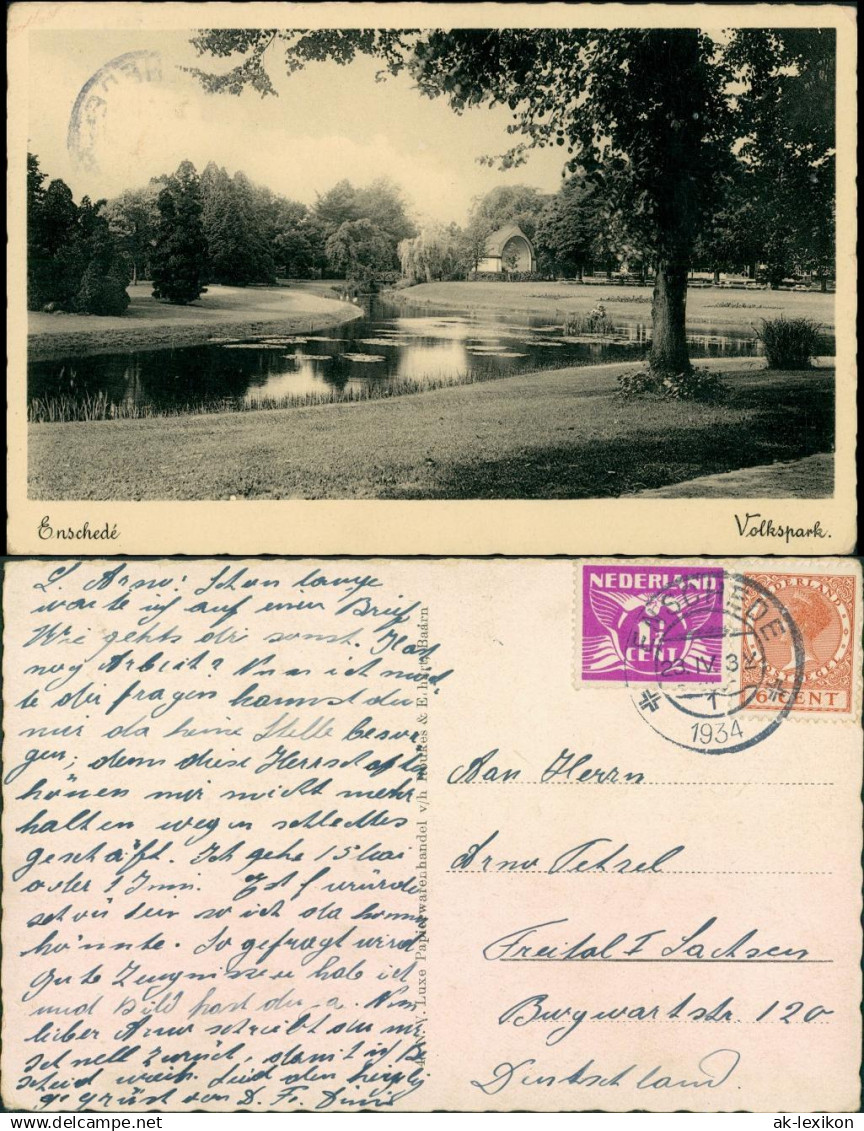 Enschedé
Volkspark.
L. Arno! Schon lange
warte ich auf einen Brief
Wie gehts dir sonst. Hast
nog Arbeit? Nun ich möch
te dir fragen kannst du
mir da keine Stelle besor
gen, denn diese Herrschaften
können mir nicht mehr
halten wegen schlechtes
geschäft. Ich gehe 15 Mai
oder 1 Juni. Es
schön sein wo ich da kommen
könnte. So gefragt wird
gute Zeugnissen hab ich
und Bild hast du a. Nun
lieber Arno schreibt du mir
schnell zurück, damit ich Be
scheid weis. Seid den
gegrüst von D. Fr.
Luxe Papierwarenhandel v/h Roukes & E. hart, Baarn
NEDERLAND
CENT
NEDERLAND
6 CENT
ENSCHEDE
23.IV.3
1
1934
Aan Herrn
Arno Tetzel
Freital I Sachsen
Burgwartstr. 120
Deutschland.
ak-ansichtskarten.de
ak-lexikon